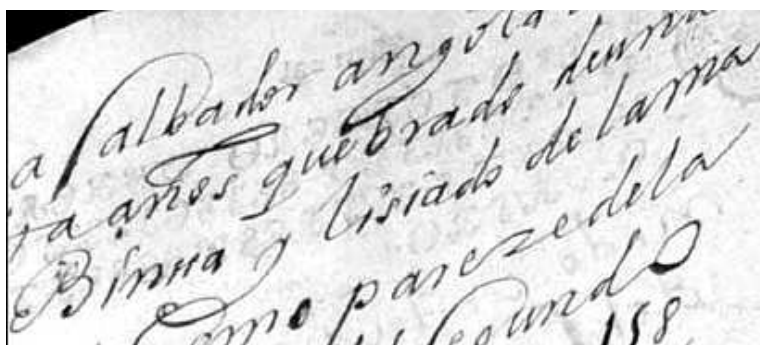 a Salbador angola
ta años quebrado deuna
y lisiado de lama
Como pareze dela
Segundo
158